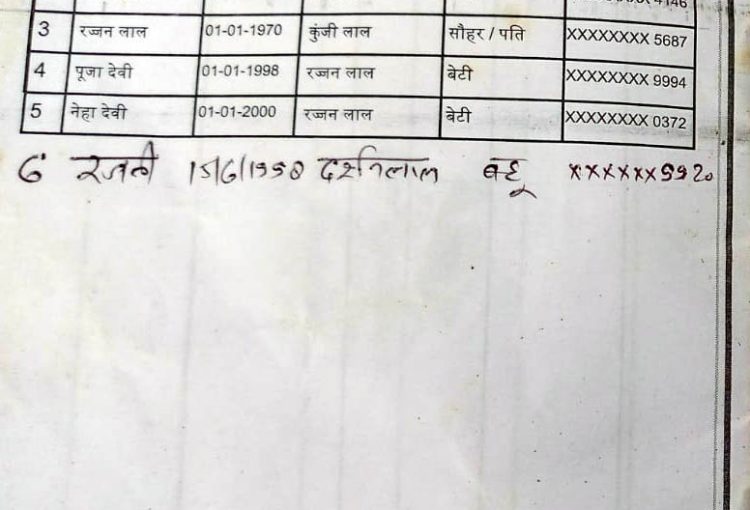 4146
3 रज्जन लाल 01-01-1970 कुंजी लाल सौहर / पति XXXXXXXX 5687
4 पूजा देवी 01-01-1998 रज्जन लाल बेटी XXXXXXXX 9994
5 नेहा देवी 01-01-2000 रज्जन लाल बेटी XXXXXXXX 0372
6 15/6/1998 बहू xxxxxx9920